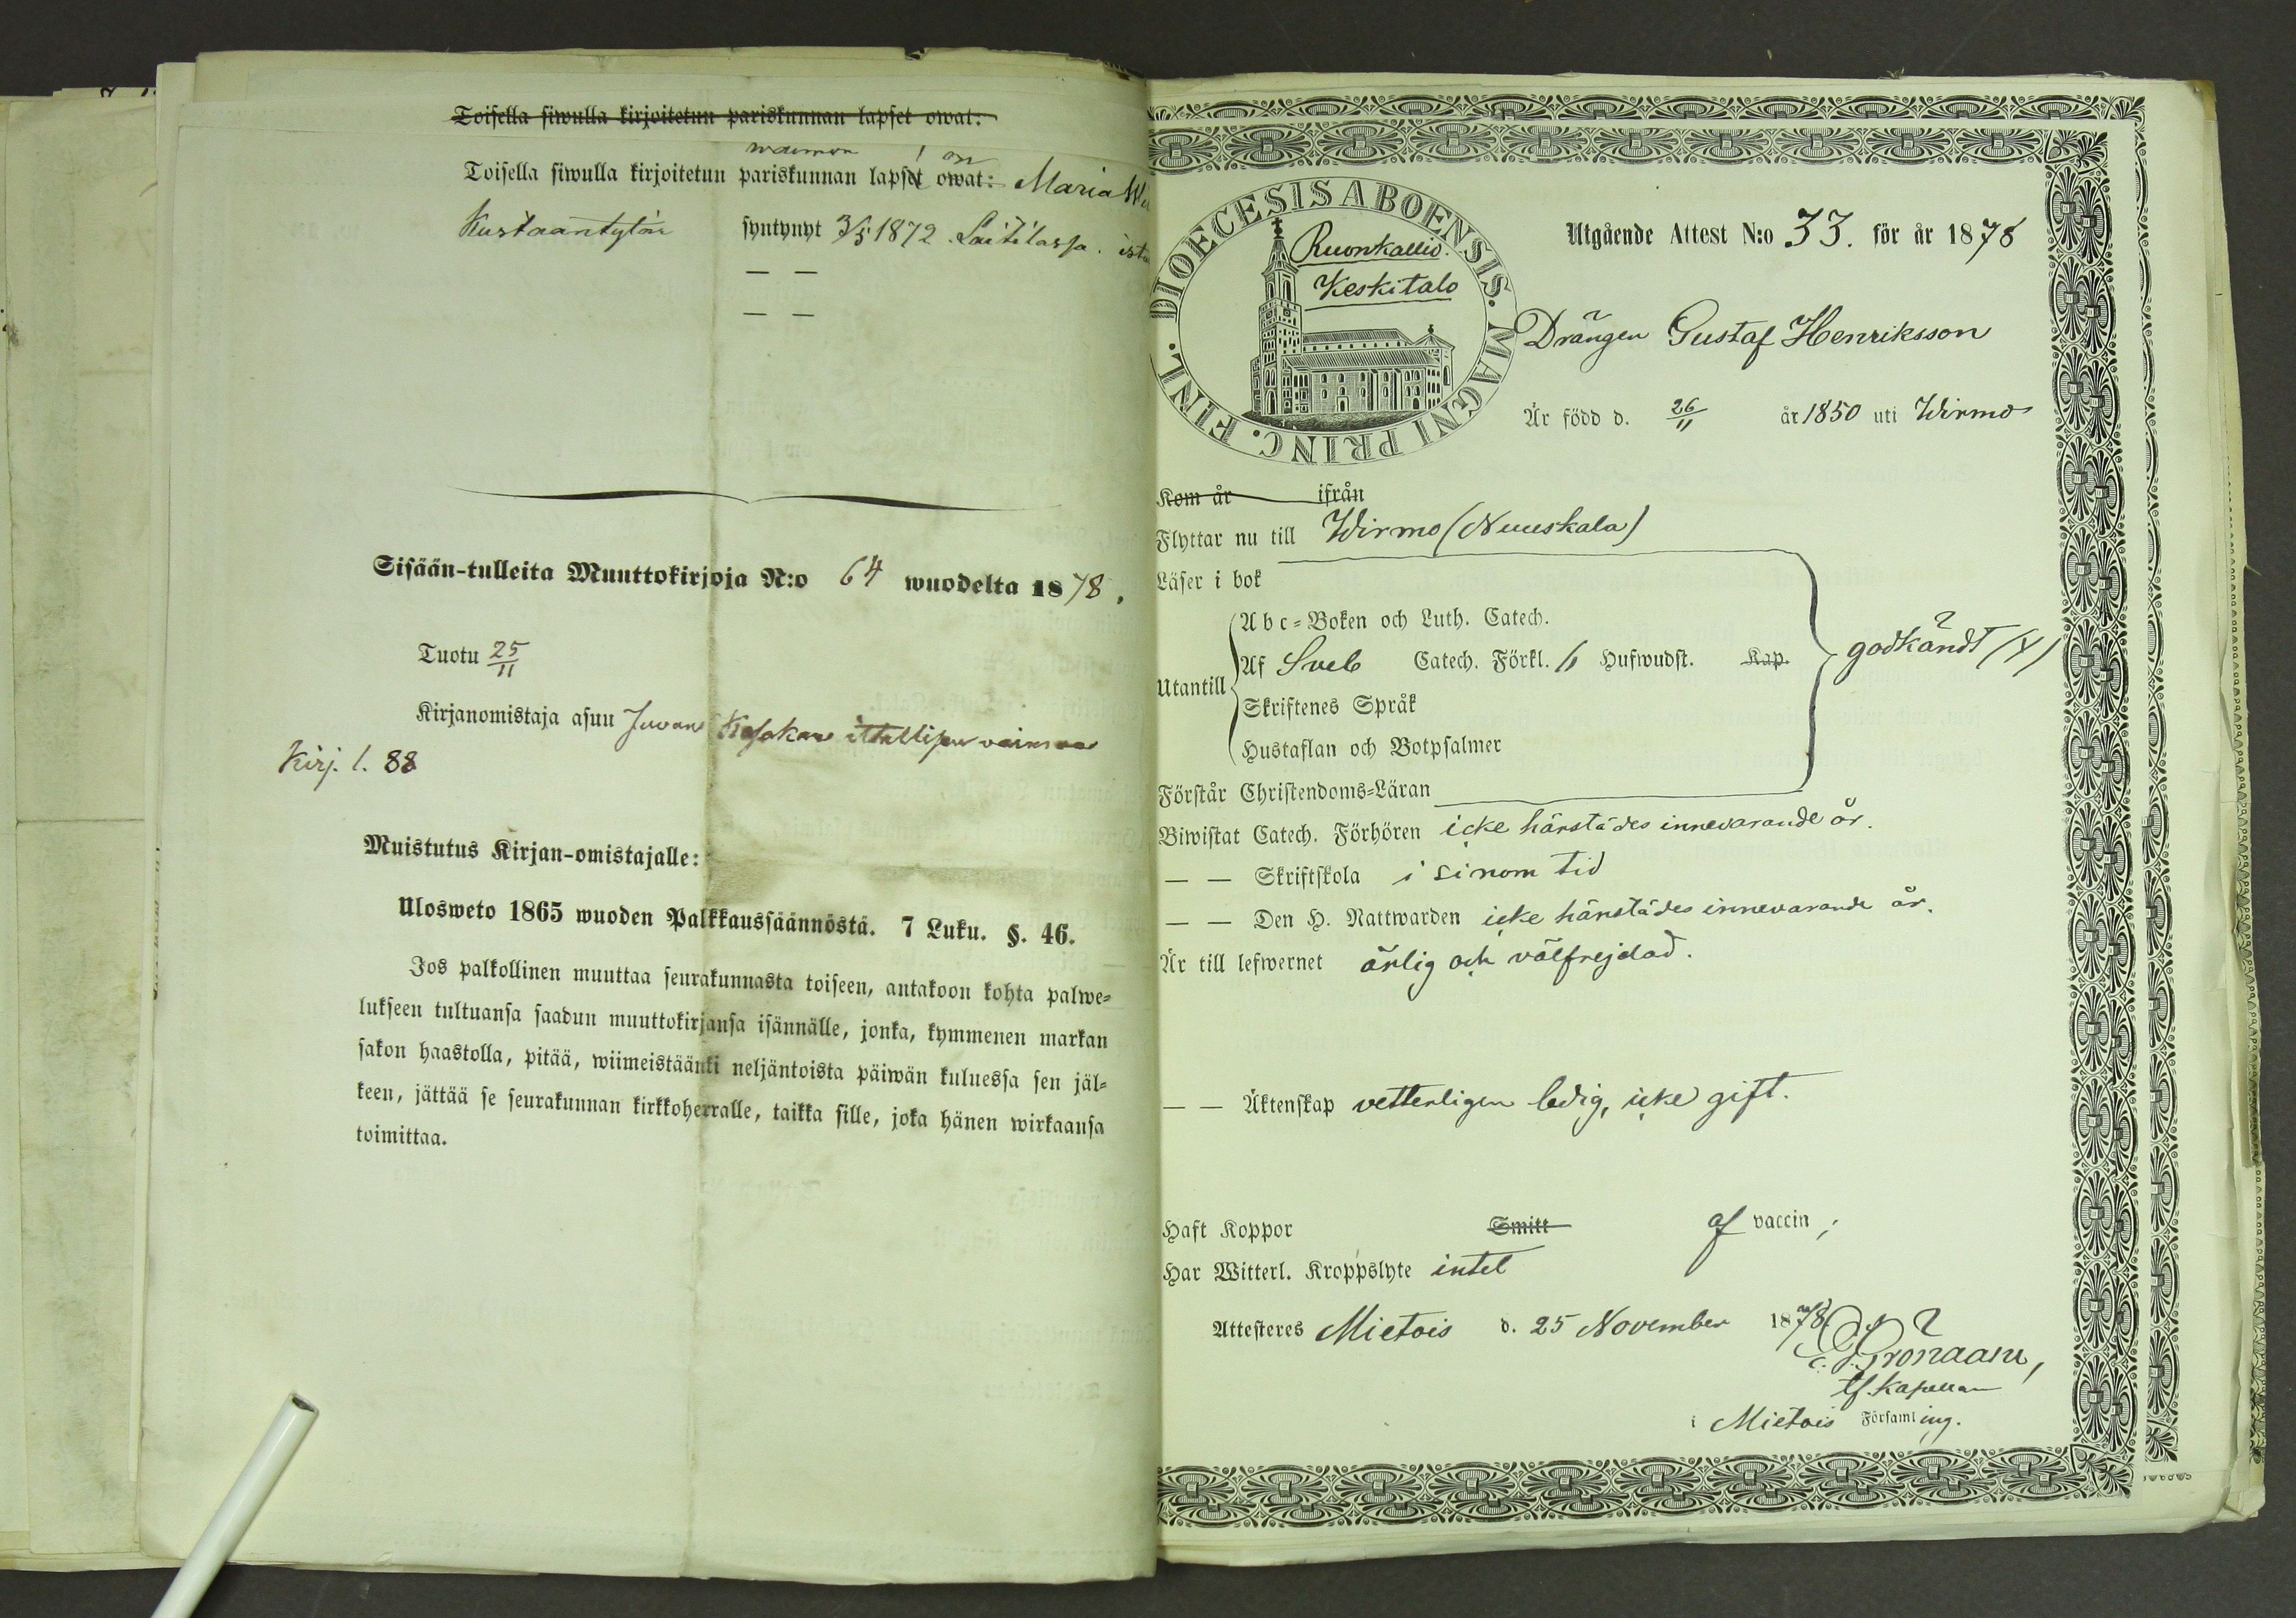 Toisella siwulla kirjoitetun pariskunnan lapset owat:
waimon on
Toisella siwulla kirjoitetun pariskunnan lapset owat: Maria
Kustaantytär syntynyt 3/5 1872 Laitilassa.
— —
— —
Sisään-tulleita Muuttokirjoja N:o 64 wuodelta 1878.
Tuotu 25/11
Kirjanomistaja asuu Juvan ittellisen vaimona
Kirj. l. 88
Muistutus Kirjan-omistajalle:
Ulosweto 1865 wuoden Palkkaussäännöstä. 7 Luku. §. 46.
Jos palkollinen muuttaa seurakunnasta toiseen, antakoon kohta palwe-
lukseen tultuansa saadun muuttokirjansa isännälle, jonka, kymmenen markan
sakon haastolla, pitää, wiimeistäänki neljäntoista päiwän kuluessa sen jäl-
keen, jättää se seurakunnan kirkkoherralle, taikka sille, joka hänen wirkaansa
toimittaa.
DIOECESIS ABOENSIS. MAGNI PRINC. FINL.
Ruonkallio.
Keskitalo
Utgående Attest N:o 33. för år 1878
Drängen Gustaf Henriksson
Är född d. 26/11 år 1850 uti Wirmo
Kom år ifrån
Flyttar nu till Wirmo (Nuuskala)
Läser i bok
Utantill
Abc-Boken och Luth. Catech.
Af Sveb Catech. Förkl. 6 Hufwudst. Kap.
Skriftenes Språk
Hustaflan och Botpsalmer
godkändt (4)
Förstår Christendoms-Läran
Biwistat Catech. Förhören icke härstädes innevarande år.
— — Skriftskola i sinom tid
— — Den H. Nattwarden icke härstädes innevarande år.
Är till lefwernet ärlig och välfrejdad.
— — Äktenskap vetterligen ledig, icke gift.
Haft Koppor Smitt af vaccin;
Har Witterl. Kroppslyte intet
Attesteres Mietois d. 25 November 1878.
Grönaau,
tf. Kapellan
i Mietois Församling.